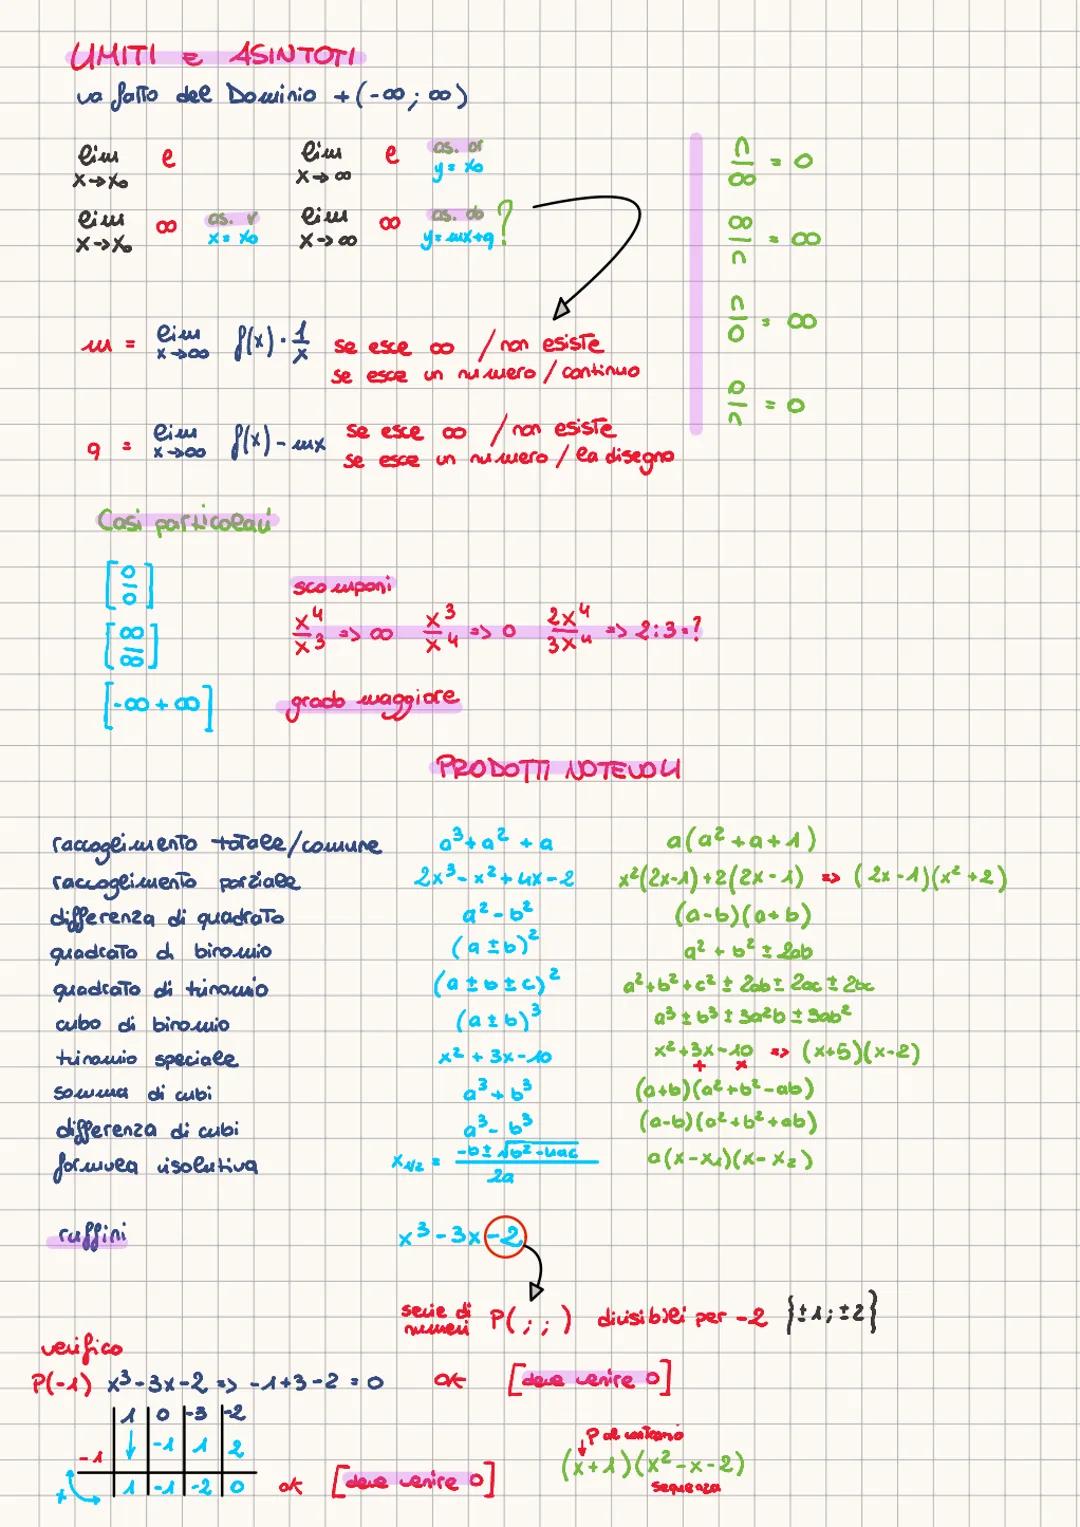 LIMITI e ASINTOTI
va fatto del Dominio + (-∞; ∞)
lim x→x₀ e
lim x→∞ e as. or y = x₀
lim x→x₀ ∞ as. v x = x₀
lim x→∞ ∞ as. ob y = mx+q ?
n/∞ = 0
∞/n = ∞
n/0 = ∞
0/n = 0
m = lim x→∞ f(x)·1/x se esce ∞ / non esiste
se esce un numero / continuo
q = lim x→∞ f(x) - mx se esce ∞ / non esiste
se esce un numero / la disegno
Casi particolari
[0/0] scomponi
[∞/∞] x⁴/x³ => ∞ x³/x⁴ => 0 2x⁴/3x⁴ => 2:3=?
[-∞+∞] grado maggiore
PRODOTTI NOTEVOLI
raccoglimento totale/comune a³+a²+a a(a²+a+1)
raccoglimento parziale 2x³-x²+4x-2 x²(2x-1)+2(2x-1) => (2x-1)(x²+2)
differenza di quadrato a²-b² (a-b)(a+b)
quadrato di binomio (a±b)² a²+b²±2ab
quadrato di trinomio (a±b±c)² a²+b²+c²±2ab±2ac±2bc
cubo di binomio (a±b)³ a³±b³±3a²b±3ab²
trinomio speciale x²+3x-10 x²+3x-10 => (x+5)(x-2)
+ x
somma di cubi a³+b³ (a+b)(a²+b²-ab)
differenza di cubi a³-b³ (a-b)(a²+b²+ab)
formula risolutiva x₁/₂ = -b±√b²-4ac / 2a a(x-x₁)(x-x₂)
ruffini x³-3x-2
serie di numeri P( ; ; ) divisibili per -2 {±1;±2}
verifico
P(-1) x³-3x-2 => -1+3-2=0 ok [deve venire 0]
1 0 -3 -2
-1 ↓ -1 1 2
+ 1 -1 -2 0 ok [deve venire 0]
P al contrario
(x+1)(x²-x-2)
sequenza